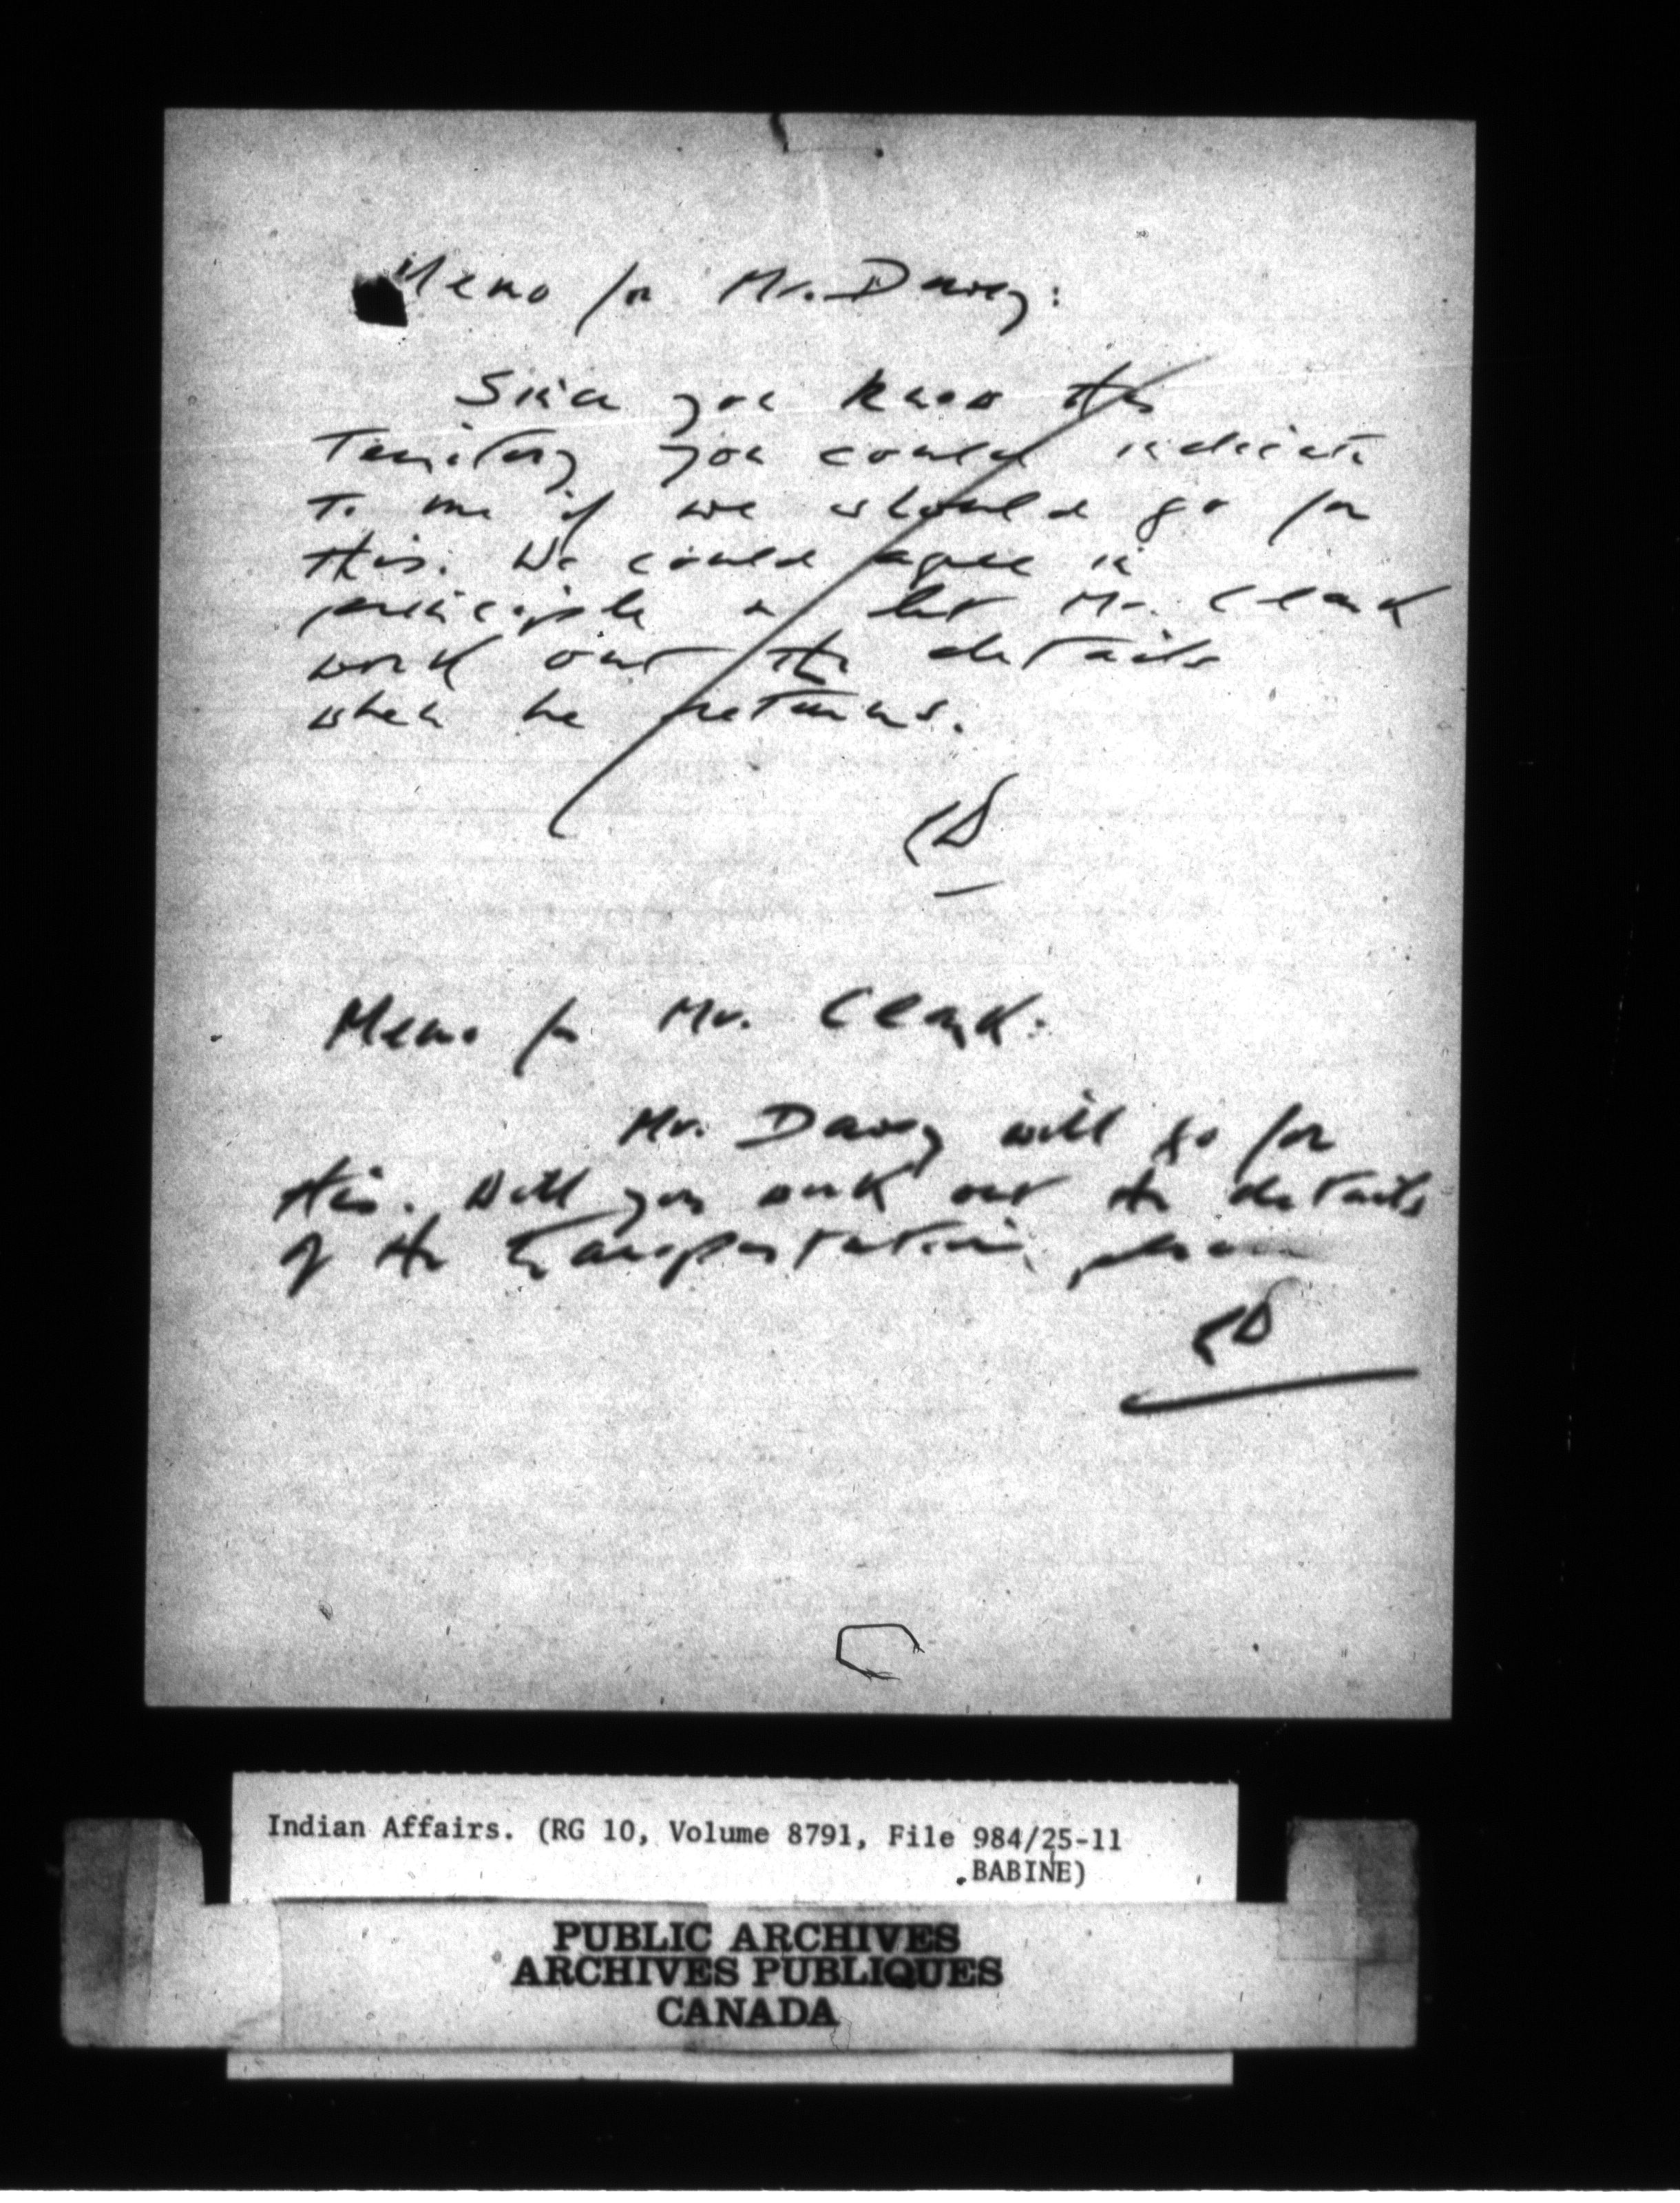 Memo for Mr. Davey:
Since you know the
Territory you could indicate
to me if we should go for
this. We could agree in
principle & let Mr. Clark
work out the details
when he returns.
Memo for Mr. Clark:
Mr. Davey will go for
this. Will you work out the details
of the transportation, please
Indian Affairs. (RG 10, Volume 8791, File 984/25-11
BABINE)
PUBLIC ARCHIVES
ARCHIVES PUBLIQUES
CANADA